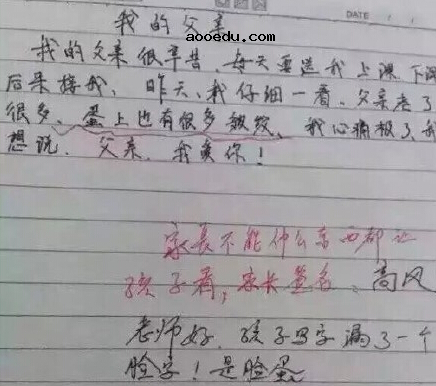 aooedu.com
我的父亲
DATE
我的父亲很辛苦 每天要送我上课、下课
后来接我、昨天、我仔细一看、父亲老了
很多、蛋上也有很多皱纹、我心痛极了、我
想说、父亲、我爱你！
家长不能什么东西都让
孩子看，家长签名：高风
老师好、孩子写字漏了一个
脸字！是脸蛋